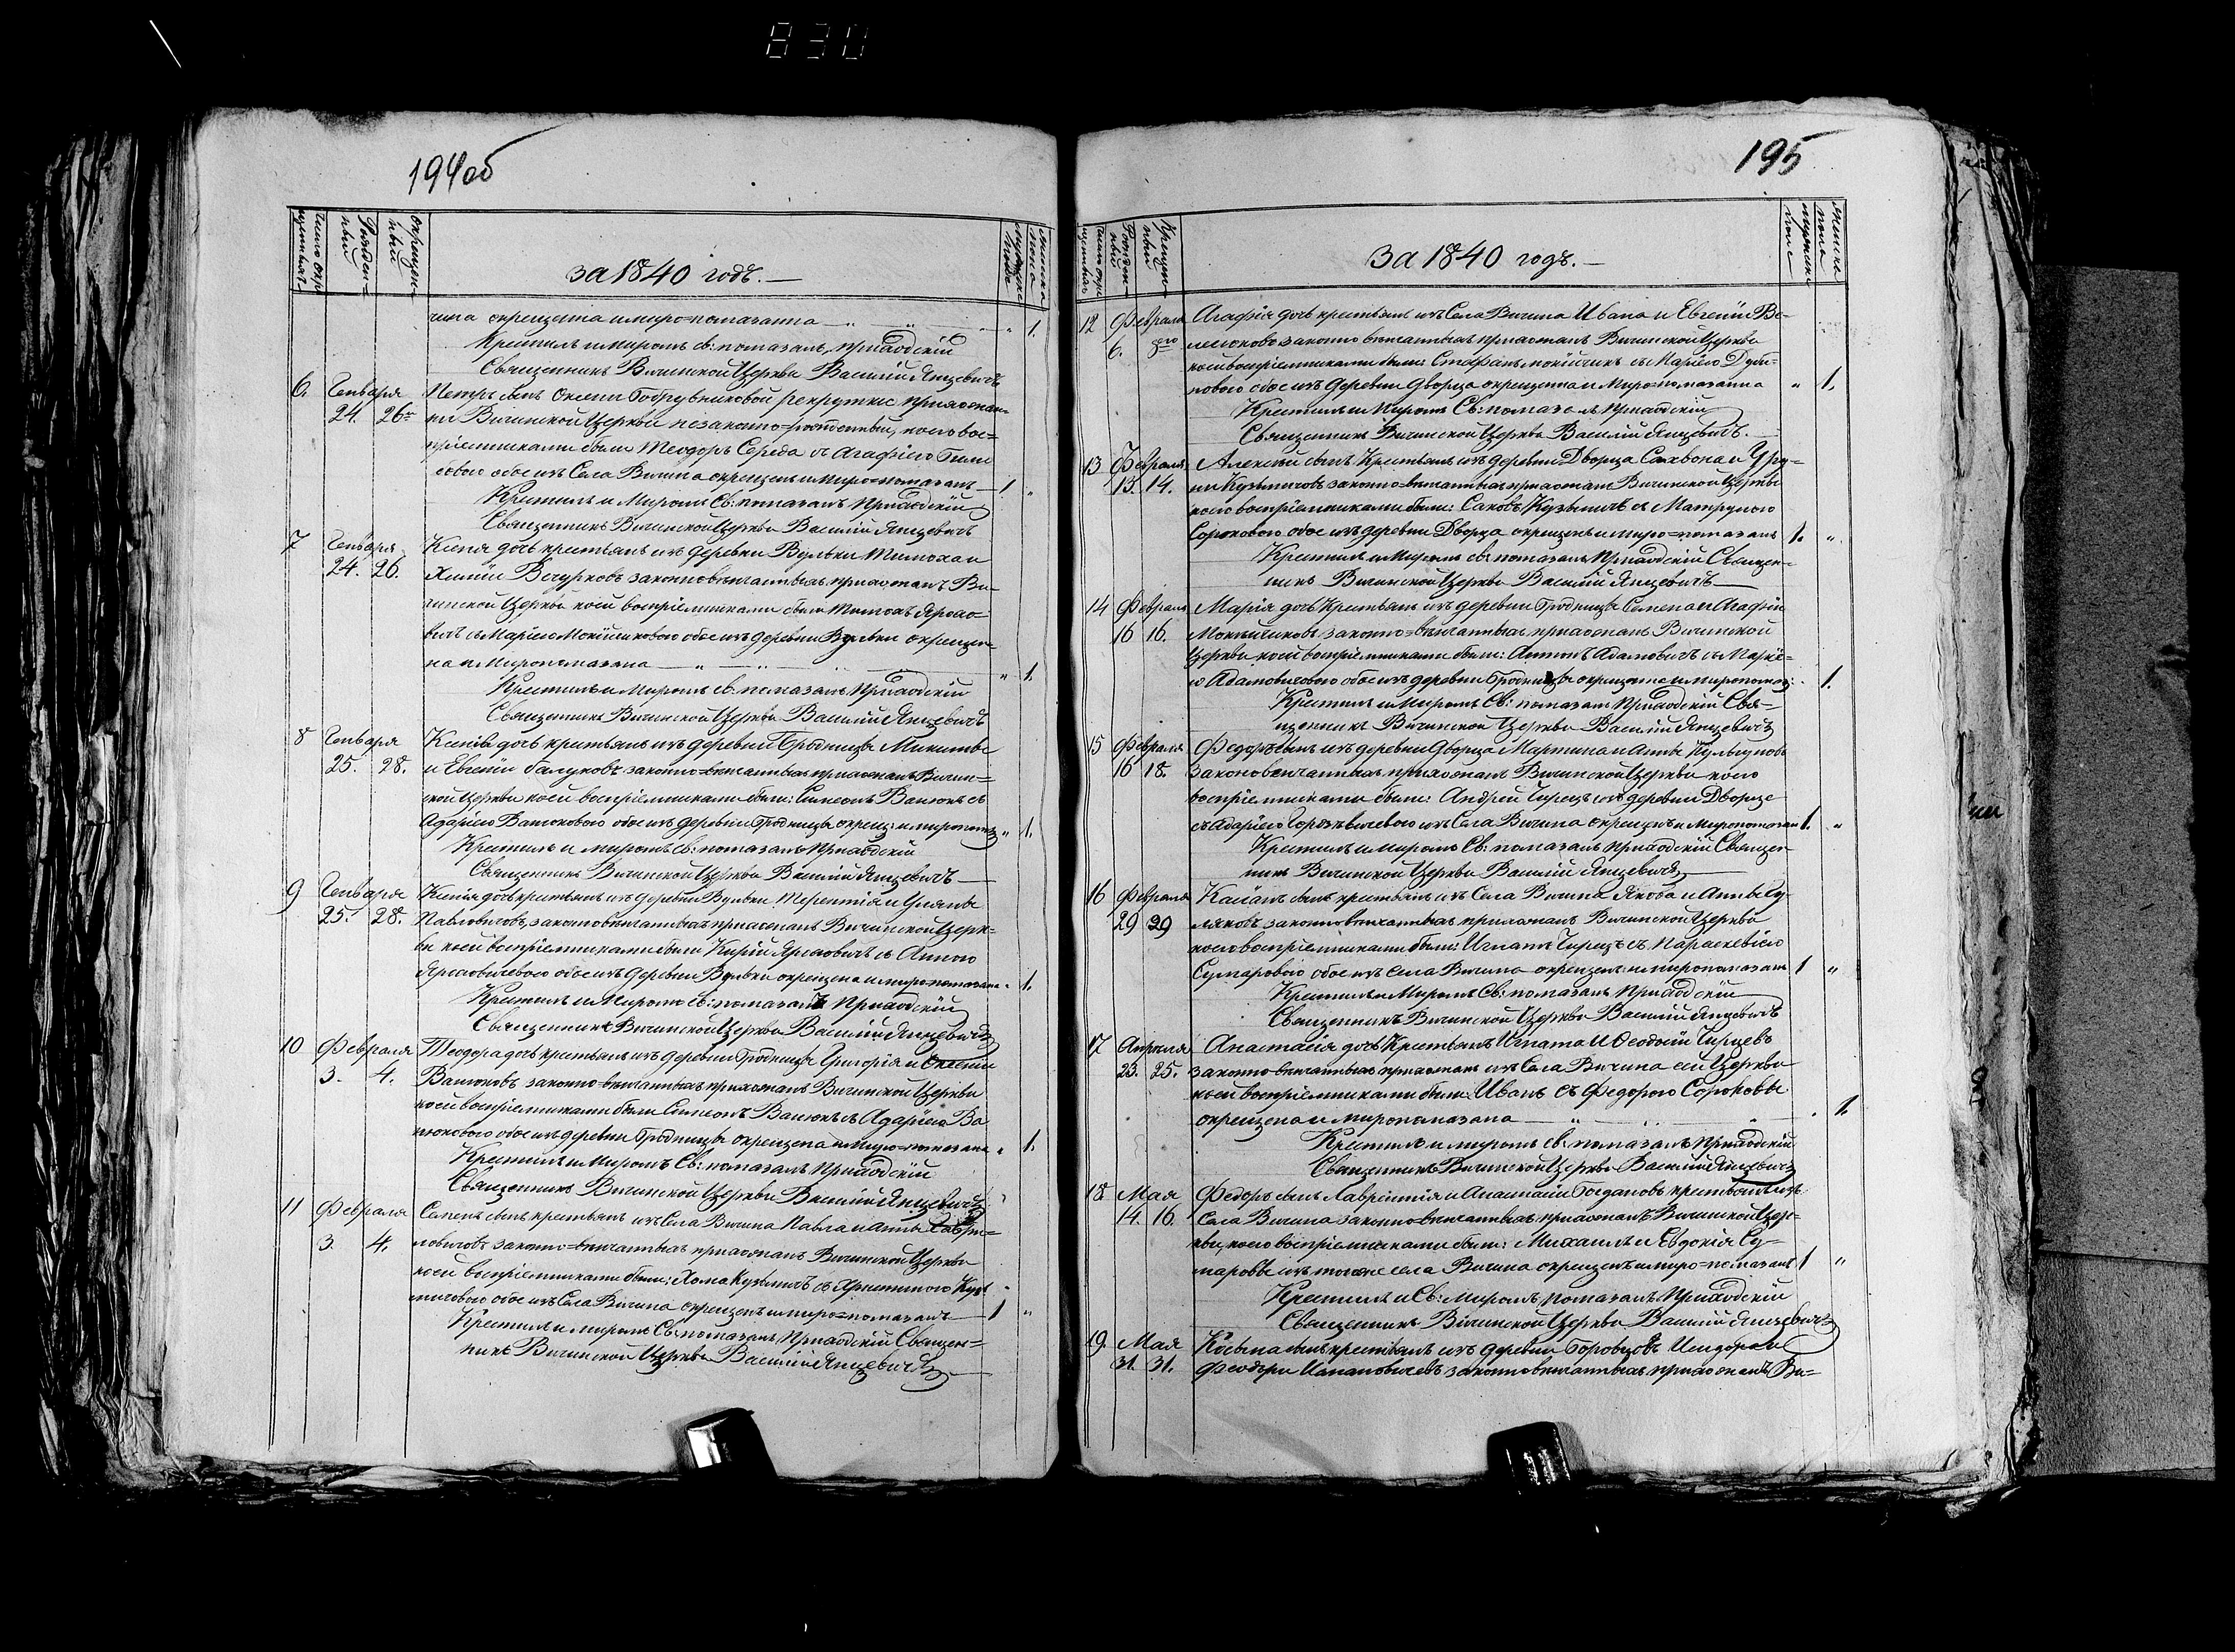 830
194об
число окрещенныхъ
рожденный
окрещенный
за 1840 годъ.
мужеска пола
женска пола
чина окрещена и миро=помазанна " 1.
Крестилъ и миромъ св: помазалъ, приходскій
Священникъ Вичинской Церкви Василій Янцевичъ
6. Генваря
24. 26го
Петръ сынъ Оксени рекрутки прихожан=
ки Вичинской Церкви незаконно=рожденный, коего вос=
пріемниками были Теодоръ Середа съ Агафіею
обое изъ Села Вичина окрещенъ и миро=помазанъ 1 "
Крестилъ и Миромъ Св: помазалъ Приходскій
Священникъ Вичинской Церкви Василій Янцевичъ
7 Генваря
24. 26.
дочь крестьянъ изъ деревни Вульки Тимоха и
законновѣнчанныхъ прихожанъ Ви=
чинской Церкви коей воспріемниками были
съ Маріею обое изъ деревни Вульки окрещен=
на и Миропомазана " 1.
Крестилъ и Миромъ св. помазалъ Приходскій
Священникъ Вичинской Церкви Василій Янцевичъ
8 Генваря
25. 28.
Ксенія дочь крестьянъ изъ деревни Бродницы Микиты
и Евгеніи законно=вѣнчанныхъ прихожанъ Вичин=
ской Церкви коей воспріемниками были: Симеонъ Ванюкъ съ
Ванюковою обое изъ деревни Бродницы окрещ: и миропомаз " 1.
Крестилъ и миромъ Св: помазалъ Приходскій
Священникъ Вичинской Церкви Василій Янцевичъ
9 Генваря
25. 28.
Ксенія дочь крестьянъ изъ деревни Вульки Терентія и Уляны
Павловичовъ, законновѣнчанныхъ прихожанъ Вичинской Церк=
ви коей воспріемниками были съ Анною
обое изъ деревни Вульки окрещена и миро=помазана " 1.
Крестилъ и Миромъ св: помазалъ Приходскій
Священникъ Вичинской Церкви Василій Янцевичъ
10 Февраля
3. 4.
Теодора дочь крестьянъ изъ деревни Бродницы Григорія и Оксени
Ванюковъ законно=вѣнчанныхъ прихожанъ Вичинской Церкви
коей воспріемниками были Симеонъ Ванюкъ съ Ва
нюковою обое изъ деревни Бродницы окрещена и миро=помазана " 1.
Крестилъ и Миромъ Св: помазалъ Приходскій
Священникъ Вичинской Церкви Василій Янцевичъ
11 Февраля
3. 4.
Семенъ сынъ крестьянъ изъ Села Вичина Павла и Анны Гаври=
ловичовъ законно=вѣнчанныхъ прихожанъ Вичинской Церкви
коей воспріемниками были: Хома Кузьмичъ съ Христиною Кузь
мичовою обое изъ Села Вичина окрещенъ и миро=помазанъ 1 "
Крестилъ и миромъ Св: помазалъ Приходскій Священ=
никъ Вичинской Церкви Василій Янцевичъ
195
число окрещенныхъ
Рожденный
Крещенный
За 1840 годъ.
мужеска пола
женска пола
12 Февраля
6. 8го
Агафія дочь крестьянъ изъ Села Вичина Ивана и Евгеніи Ве=
законно вѣнчанныхъ прихожанъ Вичинской Церкви
коей воспріемниками были: Стефанъ съ Маріею
обое изъ деревни Дворца окрещенна и Миро=помазанна " 1.
Крестилъ и Миромъ Св: помазалъ Приходскій
Священникъ Вичинской Церкви Василій Янцевичъ.
13 Февраля
13. 14.
Алексѣй сынъ Крестьянъ изъ деревни Дворца и
Кузьмичовъ законно=вѣнчанныхъ прихожанъ Вичинской Церкви
коего воспріемниками были: Кузьмичъ съ Матруною
Сороковою обое изъ деревни Дворца окрещенъ и миро=помазанъ 1. "
Крестилъ и Миромъ св: помазалъ Приходскій Священ=
никъ Вичинской Церкви Василій Янцевичъ
14 Февраля
16 16.
Марія дочь Крестьянъ изъ деревни Бродницы Семена и Агафіи
законно=вѣнчанныхъ прихожанъ Вичинской
Церкви коей воспріемниками были: Антонъ Адамовичъ съ Марі=
ею Адамовичовою обое изъ деревни Бродницы окрещенна и миропомаз: 1.
Крестилъ и Миромъ Св: помазалъ Приходскій Свя=
щенникъ Вичинской Церкви Василій Янцевичъ
15 Февраля
16 18.
Федоръ сынъ изъ деревни Дворца Мартина и Анны
законовѣнчанныхъ прихожанъ Вичинской Церкви коего
воспріемниками были: Андрей Чирецъ изъ деревни Дворца
съ изъ Села Вичина окрещенъ и Миропомазанъ 1. "
Крестилъ и миромъ Св: помазалъ приходскій Священ=
никъ Вичинской Церкви Василій Янцевичъ
16 Февраля
29 29
сынъ крестьянъ изъ Села Вичина Якова и Анны
законновѣнчанныхъ прихожанъ Вичинской Церкви
коего воспріемниками были: Игнатъ Чирецъ съ Параскевіею
Сумаровою обое изъ Села Вичина окрещенъ и миропомазанъ 1 "
Крестилъ и Миромъ Св: помазалъ Приходскій
Священникъ Вичинской Церкви Василій Янцевичъ
17 Апреля
23. 25.
Анастасія дочь Крестьянъ Игната и Феодосіи Чирцевъ
законно=вѣнчанныхъ прихожанъ изъ Села Вичина сей Церкви
коей воспріемниками были: Иванъ съ Федорою Сороковы
окрещена и миропомазана " 1.
Крестилъ и миромъ св: помазалъ приходскій
Священникъ Вичинской Церкви Василій Янцевичъ
18 Мая
14. 16.
Федоръ сынъ Лаврентія и Анастасіи Богдановъ крестьянъ изъ
Села Вичина законно=вѣнчанныхъ прихожанъ Вичинской Цер=
кви, коего воспріемниками были: Михаилъ и Евдокія Су=
маровы изъ тогоже села Вичина окрещенъ и миро=помазанъ 1 "
Крестилъ и Св: Миромъ помазалъ Приходскій
Священникъ Вичинской Церкви Василій Янцевичъ
19. Мая
31. 31.
Косьма сынъ крестьянъ изъ деревни Исидора и
Феодоры законновѣнчанныхъ прихожанъ Ви=